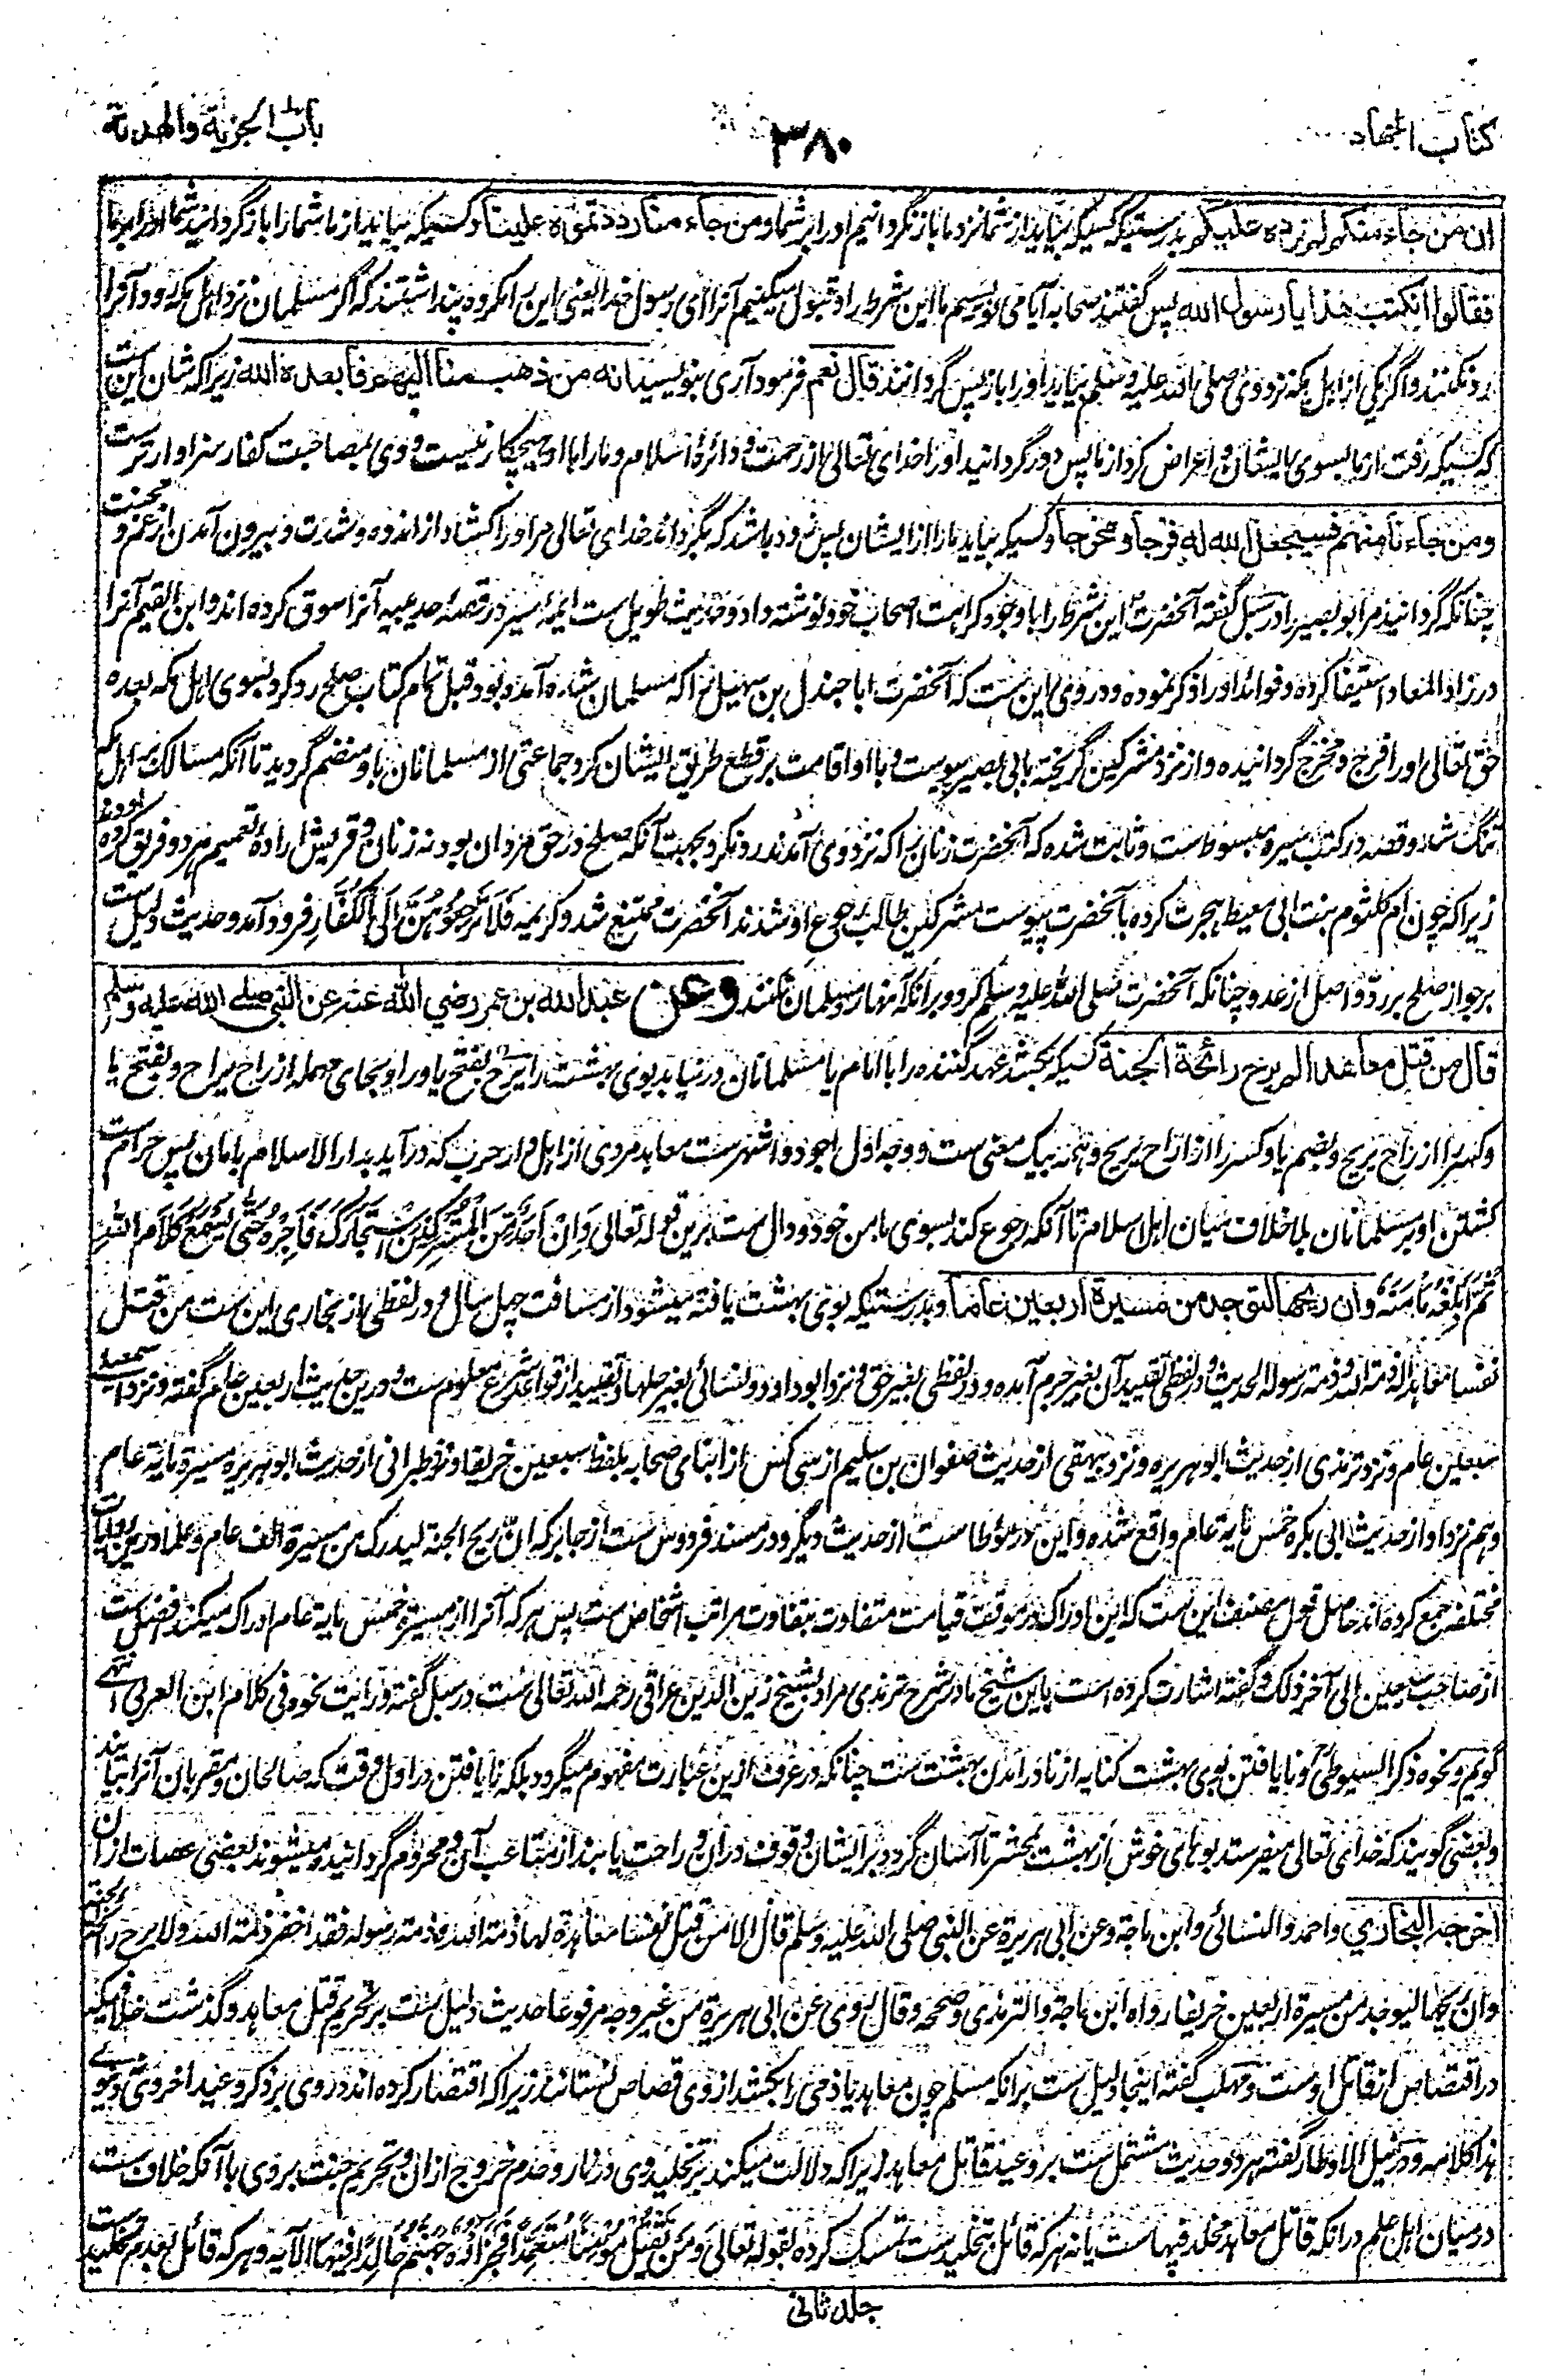 کتاب الجهاد
۳۸۰
باب الجزیة والهدنة
ان من جاء منکم لم نرده علیکم بدرستیکه کسیکه بیاید از شما نزد ما باز نگردانیم او را بر شما ومن جاء منا رددتموه علینا و کسیکه بیاید از ما شما را باز گردانید شما او را بر ما
فقالوا انکتب هذا یا رسول الله پس گفتند صحابه آیا می نویسیم ما این شرط را و قبول میکنیم آنرا ای رسول خدا یعنی این را مکروه پنداشتند که اگر مسلمان نزد اهل مکه رود آنرا
رد نکنند و اگر یکی از اهل مکه نزد وی صلی الله علیه وسلم بیاید او را باز پس گردانند قال نعم فرمود آری بنویسید انه من ذهب منا الیهم فابعده الله زیرا که شان این ست
که کسیکه رفت از ما بسوی ایشان و اعراض کرد از ما پس دور گردانید او را خدای تعالی از رحمت و دائرهٔ اسلام و ما را با او هیچ کار نیست و وی بمصاحبت کفار سزاوارتر ست
ومن جاءنا منهم فسیجعل الله له فرجا ومخرجا و کسیکه بیاید ما را از ایشان پس زود باشد که بگرداند خدای تعالی مر او را کشاد از اندوه و شدت و بیرون آمدن از غم و محنت
چنانکه گردانید مر ابو بصیر را در سبل گفته آنحضرت این شرط را با وجود کراهت اصحاب خود نوشته داد و حدیث طویل ست ایمهٔ سیر در قصهٔ حدیبیه آنرا سوق کرده اند و ابن القیم آنرا
در زاد المعاد استیفا کرده و فوائد او را ذکر نموده و در وی این ست که آنحضرت ابا جندل بن سهیل را که مسلمان شده آمده بود قبل تمام کتاب صلح رد کرد بسوی اهل مکه بعده
حق تعالی او را فرج و مخرج گردانیده و از نزد مشرکین گریخته بابی بصیر پیوست و با او اقامت بر قطع طریق ایشان کرد و جماعتی از مسلمانان باو منضم گردید تا آنکه مسالک بر اهل مکه
تنگ شد و قصه در کتب سیره مبسوط ست و ثابت شده که آنحضرت زنان را که نزد وی آمدند رد نکرد بجهت آنکه صلح در حق مردان بود نه زنان و قریش ارادهٔ تعمیم هر دو فریق کرده بودند
زیرا که چون ام کلثوم بنت ابی معیط هجرت کرده بآنحضرت پیوست مشرکین طالب رجوع او شدند آنحضرت ممتنع شد و کریمه فَلَا تَرْجِعُوهُنَّ اِلَی الْکُفَّارِ فرود آمد و حدیث دلیل ست
بر جواز صلح بر رد واصل از عدو چنانکه آنحضرت صلی الله علیه وسلم کرد و بر آنکه آنها رد مسلمان نکنند وعن عبد الله بن عمر رضی الله عنه عن النبی صلے الله علیه وسلم
قال من قتل معاهدا لم یرح رائحة الجنة کسیکه بکشد عهد کننده را با امام یا مسلمانان در نیابد بوی بهشت را یرح بفتح یا و را و بحای مهمله از راح یراح و بفتح یا
و کسر را از راح یریح و بضم یا و کسر را از اراح یریح و همه بیک معنی ست و وجه اول اجود و اشهر ست معاهد مردی از اهل دار حرب که در آید بدار الاسلام بامان پس حرام ست
کشتن او بر مسلمانان بلا خلاف میان اهل اسلام تا آنکه رجوع کند بسوی مامن خود و دال ست برین قوله تعالی وَاِنْ اَحَدٌ مِّنَ الْمُشْرِکِیْنَ اسْتَجَارَکَ فَاَجِرْهُ حَتّٰی یَسْمَعَ کَلَامَ اللهِ
ثُمَّ اَبْلِغْهُ مَأْمَنَهٗ وان ریحها لتوجد من مسیرة اربعین عاما و بدرستیکه بوی بهشت یافته میشود از مسافت چهل سال و در لفظی از بخاری این ست من قتل
نفسا معاهدا له ذمة الله و ذمة رسوله الحدیث و در لفظی تقیید آن بغیر جرم آمده و در لفظی بغیر حق و نزد ابو داود و نسائی بغیر حلها و تقیید از قواعد شرع معلوم ست و درین حدیث اربعین عام گفته و نزد
سبعین عام و نزد ترمذی از حدیث ابو هریره و نزد بیهقی از حدیث صفوان بن سلیم از سی کس از ابنای صحابه بلفظ سبعین خریفا و نزد طبرانی از حدیث ابو هریره مسیرة مایة عام
و هم نزد او از حدیث ابی بکره خمس مایة عام واقع شده و این در موطا ست از حدیث دیگر و در مسند فردوس ست از جابر که ان ریح الجنة لیدرک من مسیرة الف عام و علما درین روایات
مختلفه جمع کرده اند حاصل قول مصنف این ست که این ادراک در موقف قیامت متفاوت بتفاوت مراتب اشخاص ست پس هر که آنرا از مسیرة خمس مایة عام ادراک میکند افضل ست
از صاحب سبعین الی آخر ذلک و گفته اشارت کرده است باین شیخ ما در شرح ترمذی مراد بشیخ زین الدین عراقی رحمه الله تعالی ست در سبل گفته و رایت نحوه فی کلام ابن العربی انتهے
گویم و نحوه ذکر السیوطی و نایافتن بوی بهشت کنایه از نا در آمدن بهشت ست چنانکه در عرف ازین عبارت مفهوم میگردد بلکه نایافتن در اول وقت که صالحان و مقربان آنرا بیابند
و بعضی گویند که خدای تعالی میفرستد بوهای خوش از بهشت بمحشر تا آسان گردد بر ایشان وقوف دران و راحت یابند از متاعب آن و محروم گردانیده میشوند بعضی عصات از آن
اخرجه البخاري و احمد والنسائی وابن ماجة وعن ابی هریرة عن النبی صلی الله علیه وسلم قال الا من قتل نفسا معاهدة لها ذمة الله و ذمة رسوله فقد اخفر ذمة الله ولا یرح رائحة الجنة
وان ریحها لیوجد من مسیرة اربعین خریفا رواه ابن ماجة والترمذی وصححه وقال روی عن ابی هریرة من غیر وجه مرفوعا حدیث دلیل ست بر تحریم قتل معاهد و گذشت خلاف
در اقتصاص از قاتل او ست و مهلب گفته اینجا دلیل ست بر آنکه مسلم چون معاهد یا ذمی را بکشد از وی قصاص نستانند زیرا که اقتصار کرده اند در وی بر ذکر وعید اخروی
هذا کلامه و در نیل الاوطار گفته هر دو حدیث مشتمل ست بر وعید قاتل معاهد زیرا که دلالت میکند بر تخلید وی در نار و عدم خروج ازان و تحریم جنت بر وی با آنکه خلاف ست
در میان اهل علم در آنکه قاتل معاهد مخلد فیها ست یا نه هر که قائل تخلید ست تمسک کرده لقوله تعالی وَمَنْ یَقْتُلْ مُؤْمِنًا مُتَعَمِّدًا فَجَزَاؤُهُ جَهَنَّمُ خَالِدًا فِیْهَا الآیه و هر که قائل بعدم تخلید ست
جلد ثانی